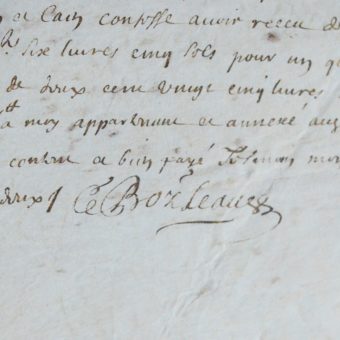 a Caen confesse avoir receu de
six livres cinq sols pour un q
de deux cent vingt cinq livres
a moy appartenant et annexé au
contrat a bien payé
deux